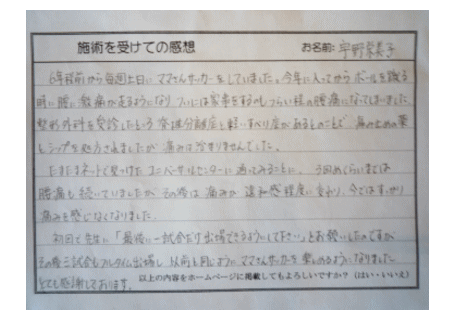 施術を受けての感想 お名前: 宇野栄美子
6年程前から毎週土日にママさんサッカーをしていました。今年に入ってからボールを蹴る
時に腰に激痛が走るようになり、ついには家事をするのもつらい程の腰痛になってしまいました。
整形外科を受診したところ 脊椎分離症と軽いすべり症があるとのことで 痛み止めの薬
とシップを処方されましたが 痛みは治まりませんでした。
たまたまネットで見つけた ユニバーサルセンターに通ってみることに。 5回めぐらいまでは
腰痛も続いていましたが その後は 痛みが 違和感程度に変わり、今ではすっかり
痛みを感じなくなりました。
初回で先生に「最後に一試合だけ出場できるようにして下さい」とお願いしたのですが
その後三試合もフルタイム出場し 以前と同じように ママさんサッカーを楽しめるようになりました
とても感謝しております。
以上の内容をホームページに掲載してもよろしいですか？（はい・いいえ）